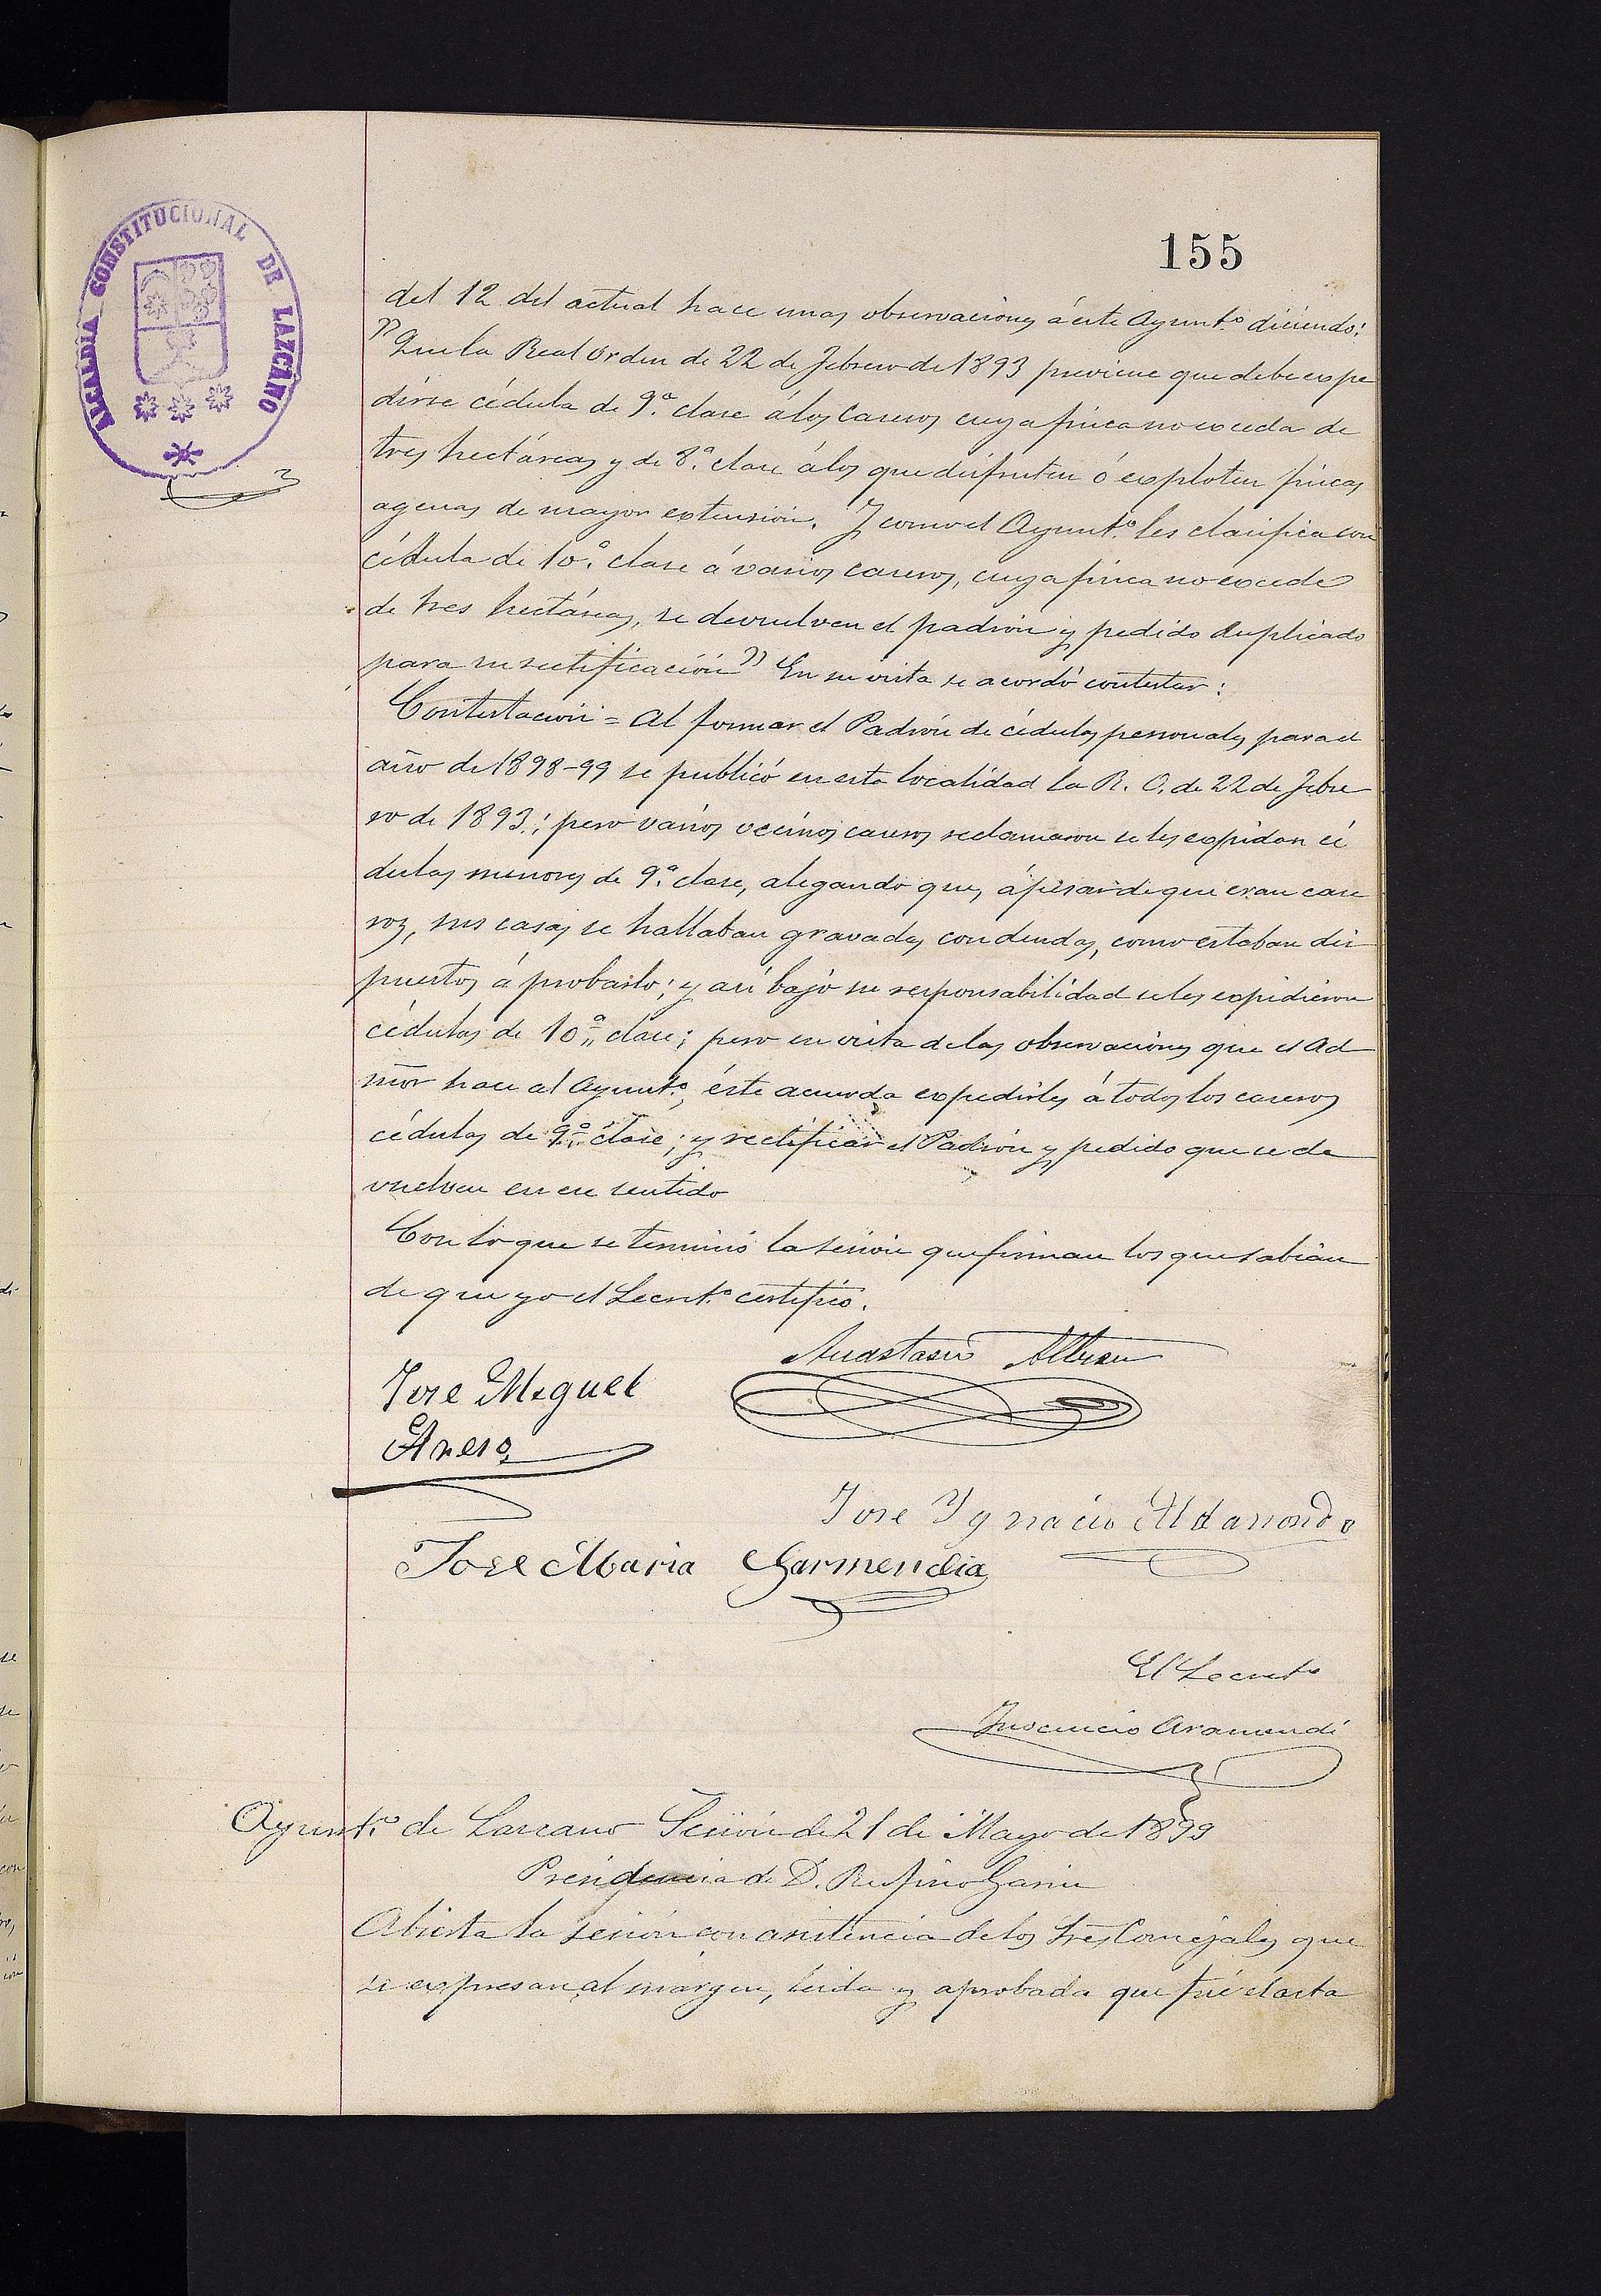 ALCALDÍA CONSTITUCIONAL DE LAZCANO
155
del 12 del actual hace unas observaciones á este Ayunt.º diciendo:
"Que la Real órden de 22 de Febrero de 1893 previene que debe expe
dirse cédula de 9.ª clase á los caseros cuya finca no exceda de
tres hectáreas y de 8.ª clase á los que disfruten ó exploten fincas
agenas de mayor extensión. Y como el Ayunt.º les clasifica con
cédula de 10.ª clase á varios caseros, cuya finca no excede
de tres hectáreas, se devuelven el padrón y pedido duplicado
para su rectificación" En su vista se acordó contestar:
Contestación = Al formar el Padrón de cédulas personales para el
año de 1898-99 se publicó en esta localidad la R. O. de 22 de Febre
ro de 1893; pero varios vecinos caseros reclamaron se les expidan cé
dulas menores de 9.ª clase, alegando que, á pesar de que eran case
ros, sus casas se hallaban gravadas con deudas, como estaban dis
puestos á probarlo; y así bajo su responsabilidad se les expidieron
cédulas de 10.ª clase; pero en vista de las observaciones que el Ad
mor hace al Ayunt.º, éste acuerda expedirles á todos los caseros
cédulas de 9.ª clase; y rectificar el Padrón y pedido que se de
vuelven en ese sentido
Con lo que se terminó la sesión que firman los que sabían
de que yo el Secret.º certifico.
Anastasio Albisu
Jose Miguel
Jose Ygnacio Aldasondo
Jose Maria Garmendia
El Secret.º
Inocencio Aramendi
Ayunt.º de Lazcano Sesión de 21 de Mayo de 1899
Presidencia de D. Rufino Garin
Abierta la sesión con asistencia de los Sres Concejales que
se expresan al márgen, leida y aprobada que fué el acta